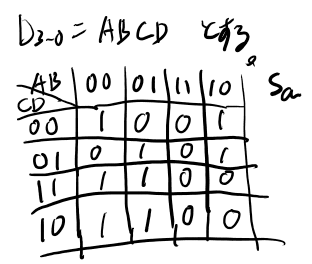 D3~0 = ABCD とする。
AB 00 01 11 10 Sa
CD
00 1 0 0 1
01 0 1 0 1
11 1 1 0 0
10 1 1 0 0